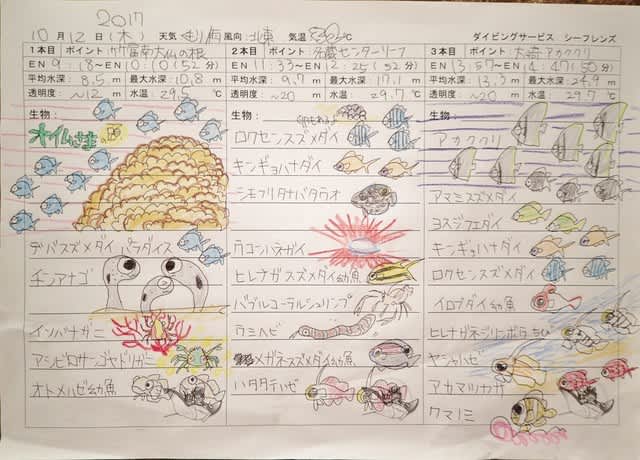 2017
10月12日(木) 天気 風向 北東 気温 ℃ ダイビングサービス シーフレンズ
1本目 ポイント 竹富南大仏の根
EN 9:18〜EX 10:10(52分)
平均水深: 8.5m 最大水深: 10.8m
透明度: 〜12m 水温: 29.5℃
生物:
デバスズメダイ パラダイス
チンアナゴ
イソバナガニ
アシビロサンゴヤドリガニ
オトメハゼ幼魚
2本目 ポイント 名蔵センターリーフ
EN 11:33〜EX 12:25(52分)
平均水深: 9.7m 最大水深: 17.1m
透明度: 〜20m 水温: 29.7℃
生物:
ロクセンスズメダイ
キンギョハナダイ
シモフリタナバタウオ
ウコンハネガイ
ヒレナガスズメダイ幼魚
バブルコーラルシュリンプ
ウミヘビ
メガネスズメダイ幼魚
ハタタテハゼ
3本目 ポイント 大崎アカククリ
EN 13:57〜EX 14:47(50分)
平均水深: 13.3m 最大水深: 24.9m
透明度: 〜20m 水温: 29.7℃
生物:
アカククリ
アマミスズメダイ
ヨスジフエダイ
キンギョハナダイ
ロクセンスズメダイ
イロブダイ幼魚
ヒレナガネジリンボウ
ヤシャハゼ
アカマツカサ
クマノミ